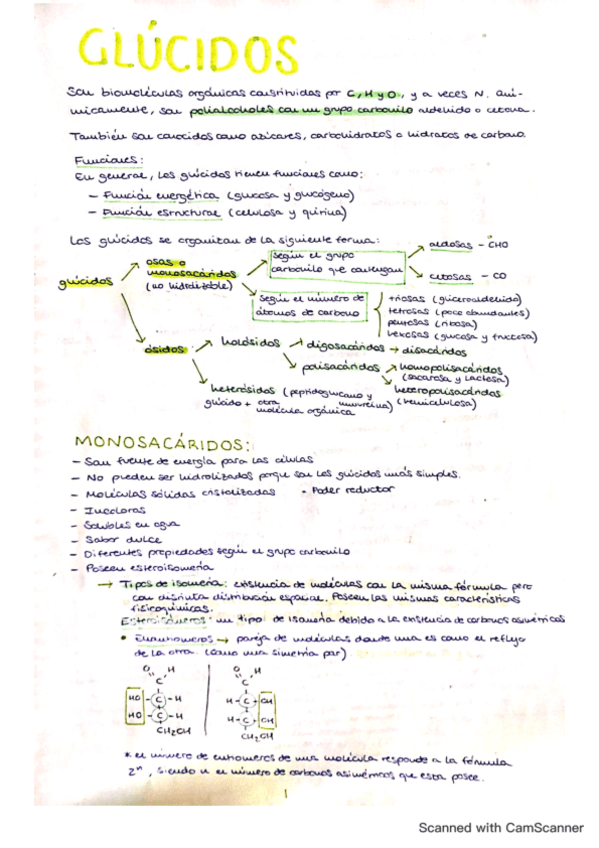 GLÚCIDOS
Son biomoléculas orgánicas constituidas por C, H y O, y a veces N. Quí-
micamente, son polialcoholes con un grupo carbonilo aldehído o cetona.
También son conocidos como azúcares, carbohidratos o hidratos de carbono.
Funciones:
En general, los glúcidos tienen funciones como:
– Función energética (glucosa y glucógeno)
– Función estructural (celulosa y quitina)
Los glúcidos se organizan de la siguiente forma:
glúcidos
osas o
monosacáridos
(no hidrolizable)
según el grupo
carbonilo que contengan
aldosas – CHO
cetosas – CO
según el número de
átomos de carbono
triosas (gliceroaldehído)
tetrosas (poco abundantes)
pentosas (ribosa)
hexosas (glucosa y fructosa)
ósidos
holósidos → oligosacáridos → disacáridos
polisacáridos → homopolisacáridos
(sacarosa y lactosa)
heteropolisacáridos
(hemicelulosa)
heterósidos (peptidoglucano y
glúcido + otra
molécula orgánica
MONOSACÁRIDOS:
– Son fuente de energía para las células
– No pueden ser hidrolizados porque son los glúcidos más simples.
– Moléculas sólidas cristalizadas • Poder reductor
– Incoloras
– Solubles en agua
– Sabor dulce
– Diferentes propiedades según el grupo carbonilo
– Poseen esteroisomería
→ Tipos de isomería: existencia de moléculas con la misma fórmula pero
con distinta distribución espacial. Poseen las mismas características
fisicoquímicas.
Esteroisómeros: un tipo de isomería debido a la existencia de carbonos asimétricos
• Enantiómeros → pareja de moléculas donde una es como el reflejo
de la otra. (como una simetría par).
O H
C
HO – C – H
HO – C – H
CH₂OH
O H
C
H – C – OH
H – C – OH
CH₂OH
* el número de de una molécula responde a la fórmula
2ⁿ, siendo n el número de carbonos asimétricos que esta posee.
1
Scanned with CamScanner